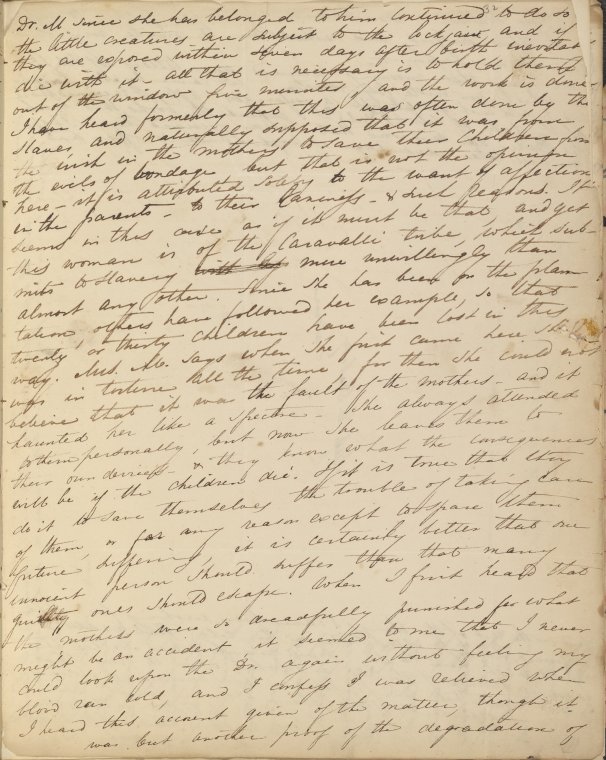 Dr. M since she has belonged to him continued to do so
the little creatures are subject to the lock jaw, and if
they are exposed within seven days after birth inevitably
die with it - all that is necessary is to hold them
out of the window five minutes, and the work is done -
I have heard formerly that this was often done by the
slaves and naturally supposed that it was from
the wish in the mothers to save their children from
the evils of bondage but that is not the opinion
here - it is attributed solely to the want of affection
in the parents - to their laziness - & such reasons. It
seems in this case as if it must be that and yet
this woman is of the Caravalli tribe, which sub-
mits to slavery with less more unwillingly than
almost any other. Since she has been on the plan-
tation, others have followed her example, so that
twenty or thirty children have been lost in this
way. Mrs. M. says when she first came here she
was in torture all the time, for then she could not
believe that it was the fault of the mothers - and it
haunted her like a spectre - She always attended
to them personally, but now she leaves them to
their own devices - & they know what the consequences
will be if the children die. If it is true that they
do it to save themselves the trouble of taking care
of them, or for any reason except to spare them
future suffering it is certainly better that one
innocent person should suffer than that many
guilty ones should escape. When I first heard that
the mothers were so dreadfully punished for what
might be an accident, it seemed to me that I never
could look upon the Dr. again without feeling my
blood run cold, and I confess I was relieved when
I heard this account given of the matter, though it
was but another proof of the degradation of